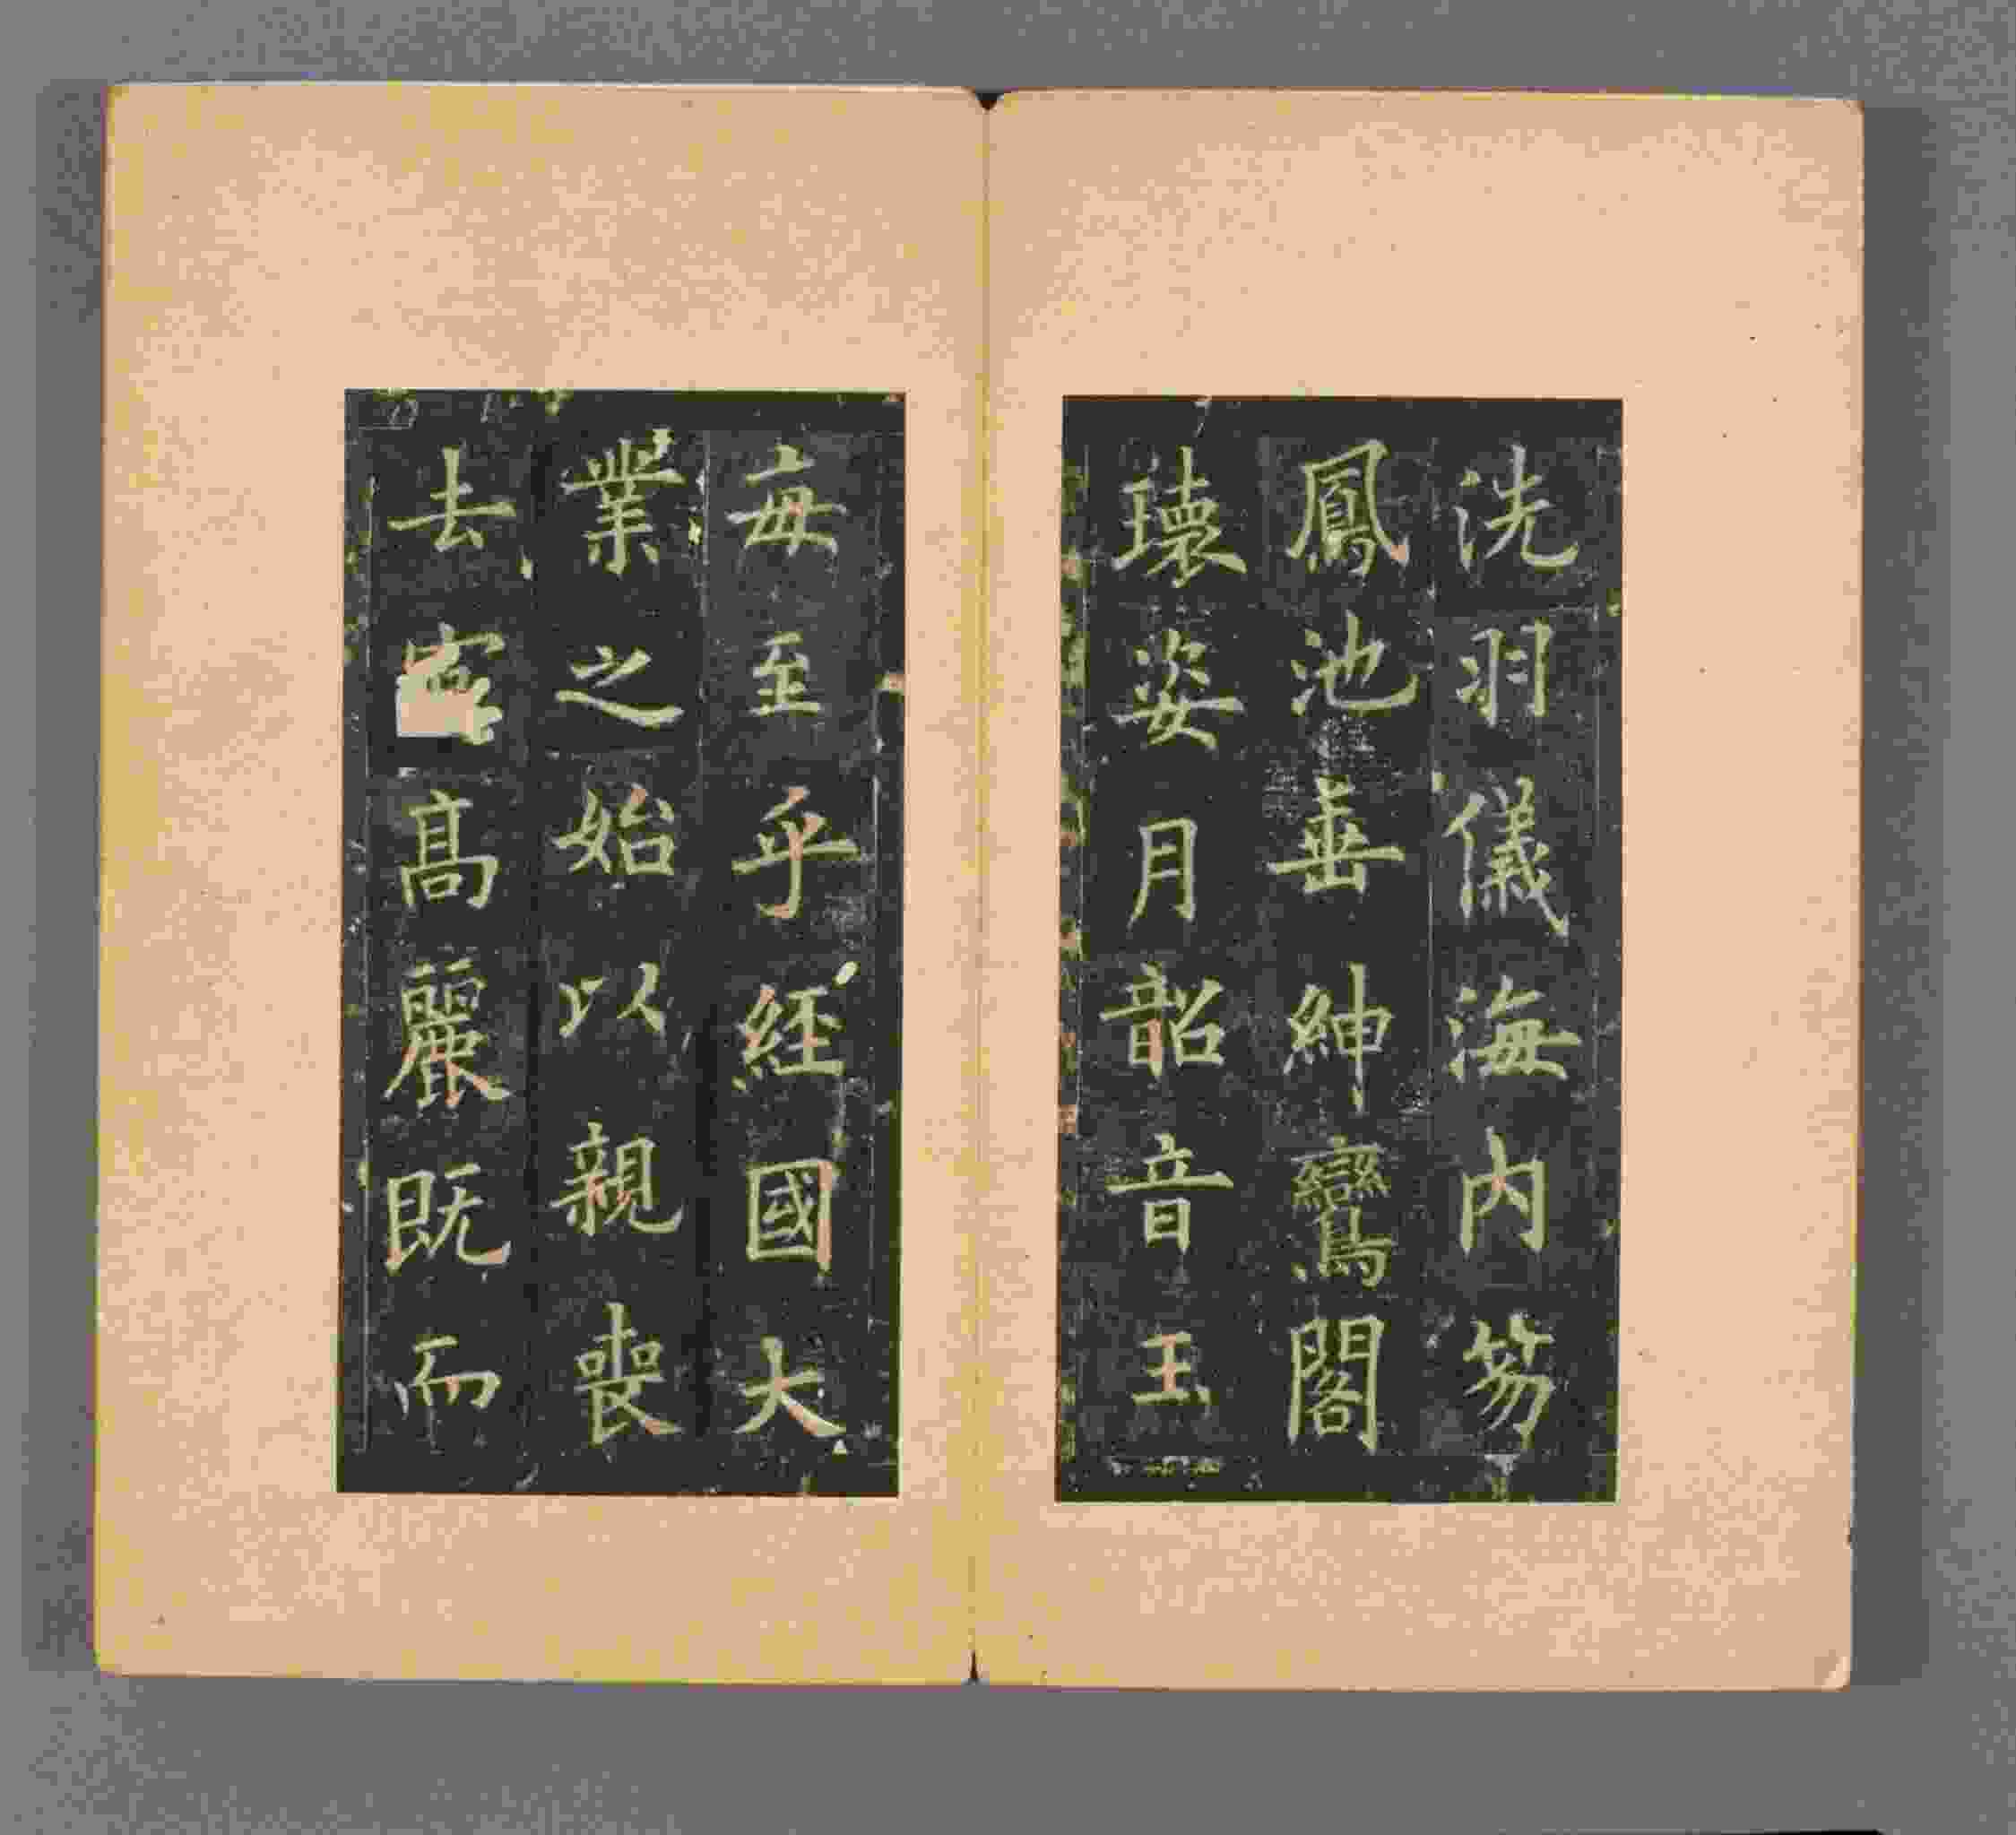 洗羽儀海內笏
鳳池垂紳鸞閣
瓌姿月韶音玉
每至乎經國大
業之始以親喪
去官高麗既而